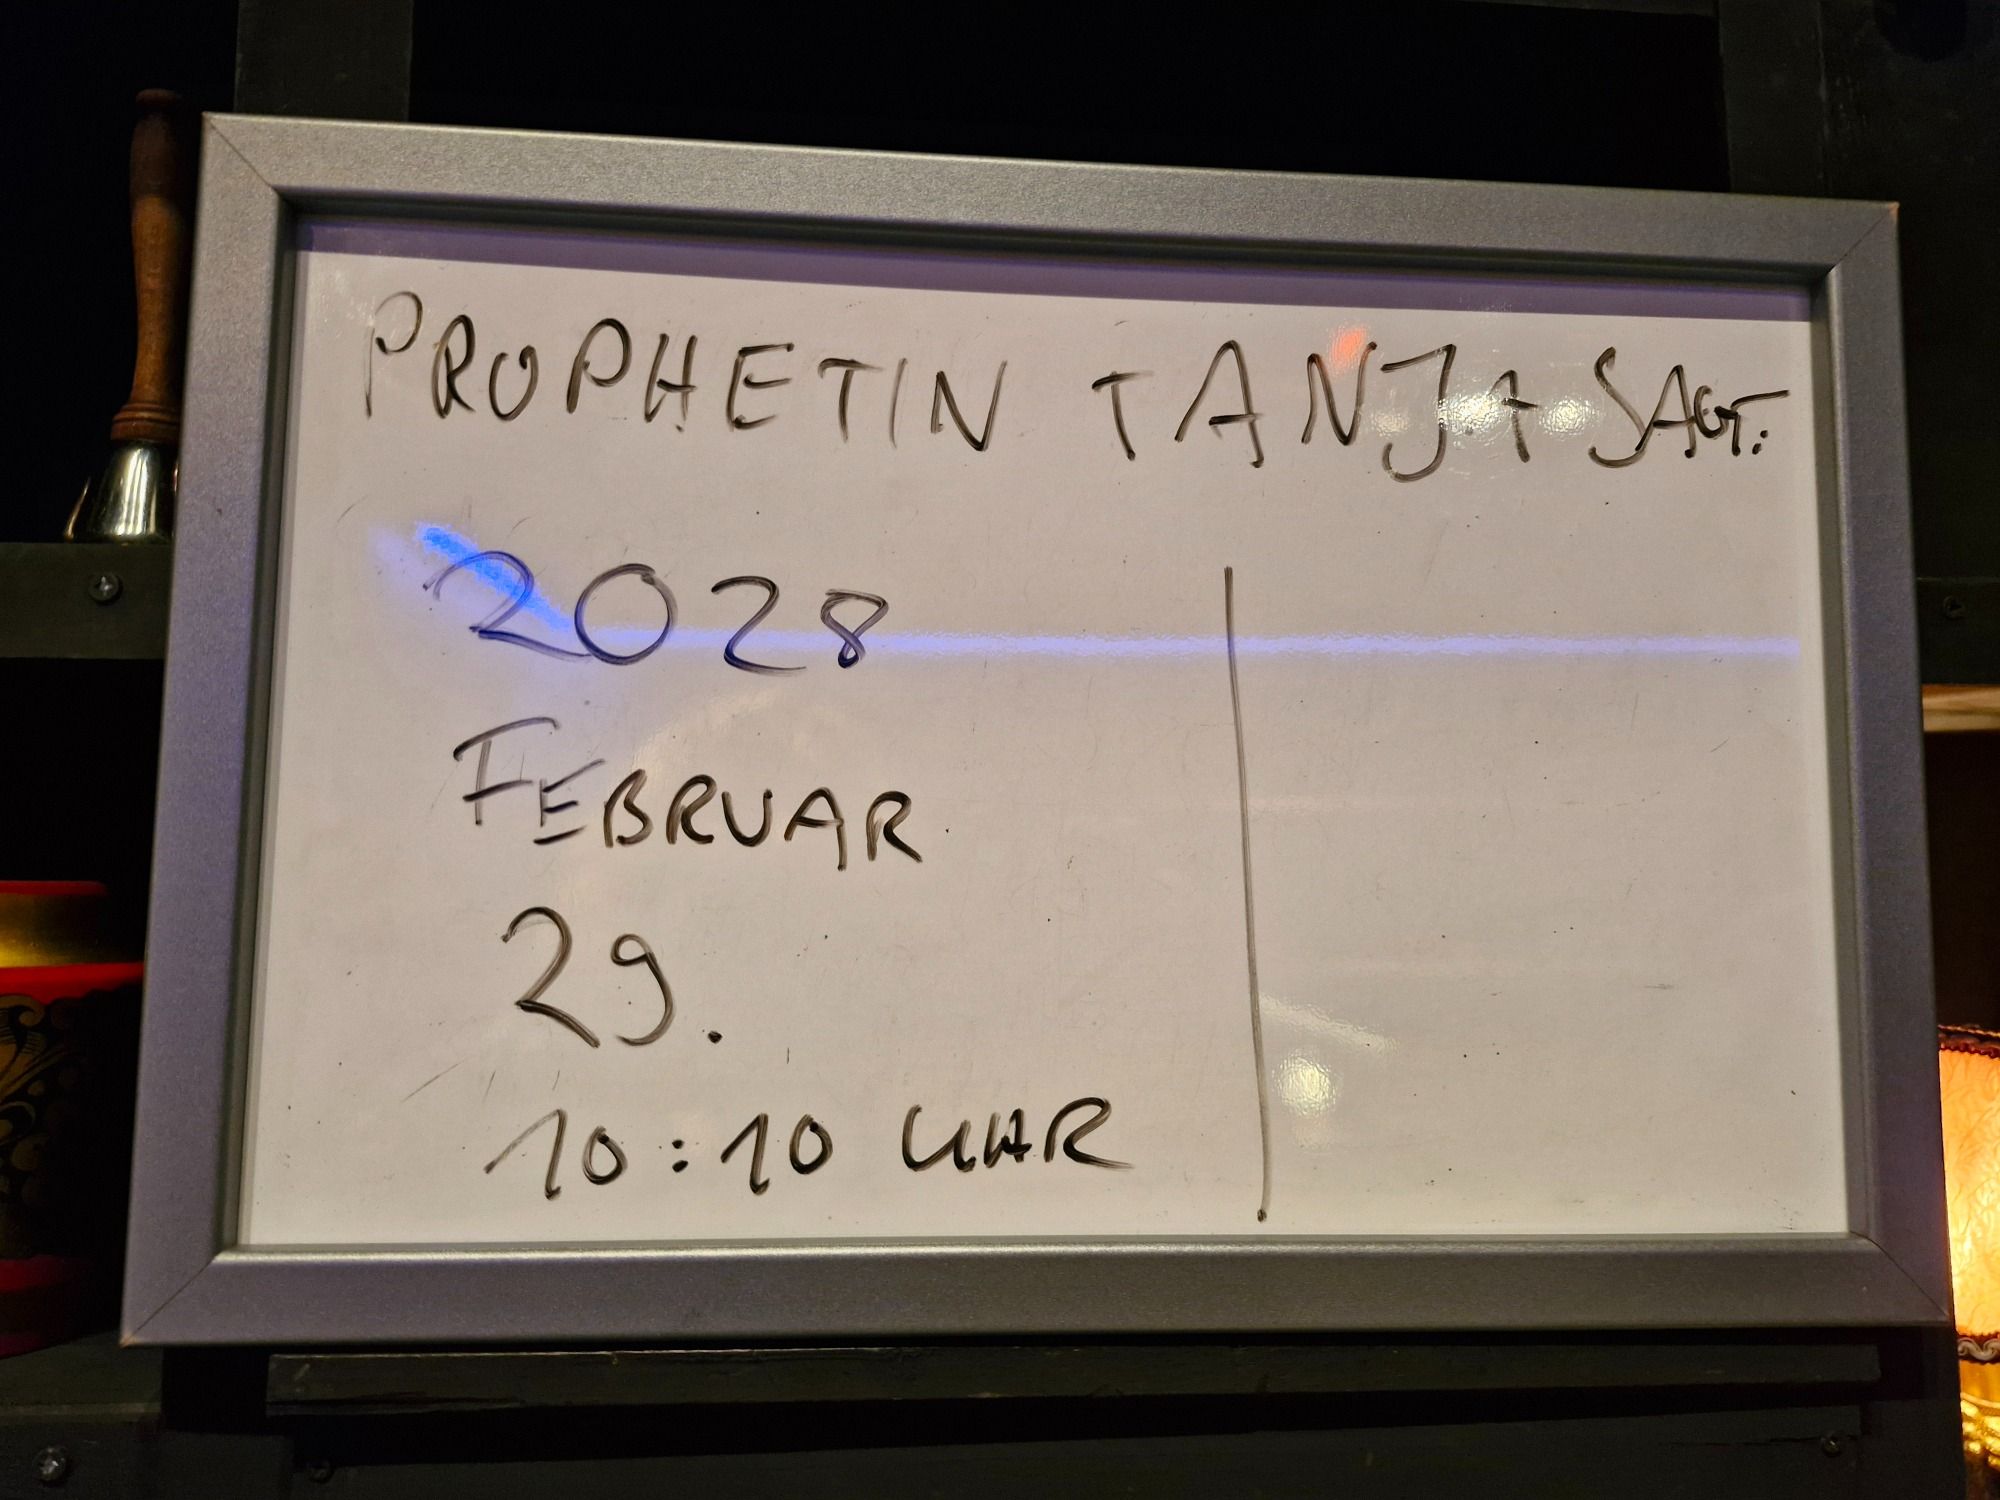 PROPHETIN TANJA SAGT:
2028
FEBRUAR
29.
10:10 UHR